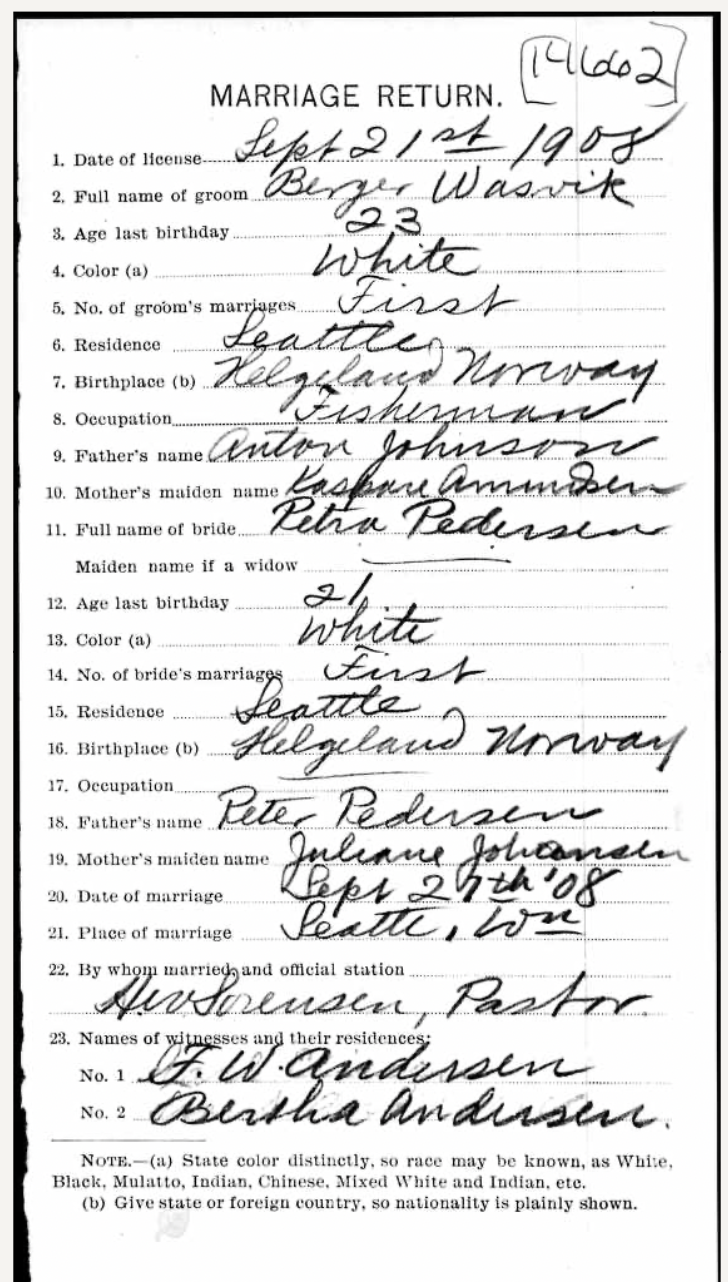 14662
MARRIAGE RETURN.
1. Date of license Sept 21st 1908
2. Full name of groom Berger Wasvik
3. Age last birthday 23
4. Color (a) White
5. No. of groom's marriages First
6. Residence Seattle
7. Birthplace (b) Helgeland Norway
8. Occupation Fisherman
9. Father's name Anton Johnson
10. Mother's maiden name Kaspare Amundsen
11. Full name of bride Petra Pedersen
Maiden name if a widow
12. Age last birthday 21
13. Color (a) White
14. No. of bride's marriages First
15. Residence Seattle
16. Birthplace (b) Helgeland Norway
17. Occupation
18. Father's name Peter Pedersen
19. Mother's maiden name Juliane Johansen
20. Date of marriage Sept 27th '08
21. Place of marriage Seattle, Wn
22. By whom married, and official station
Sorensen, Pastor.
23. Names of witnesses and their residences:
No. 1 F. W. Andersen
No. 2 Bertha Andersen.
NOTE.—(a) State color distinctly, so race may be known, as White,
Black, Mulatto, Indian, Chinese, Mixed White and Indian, etc.
(b) Give state or foreign country, so nationality is plainly shown.